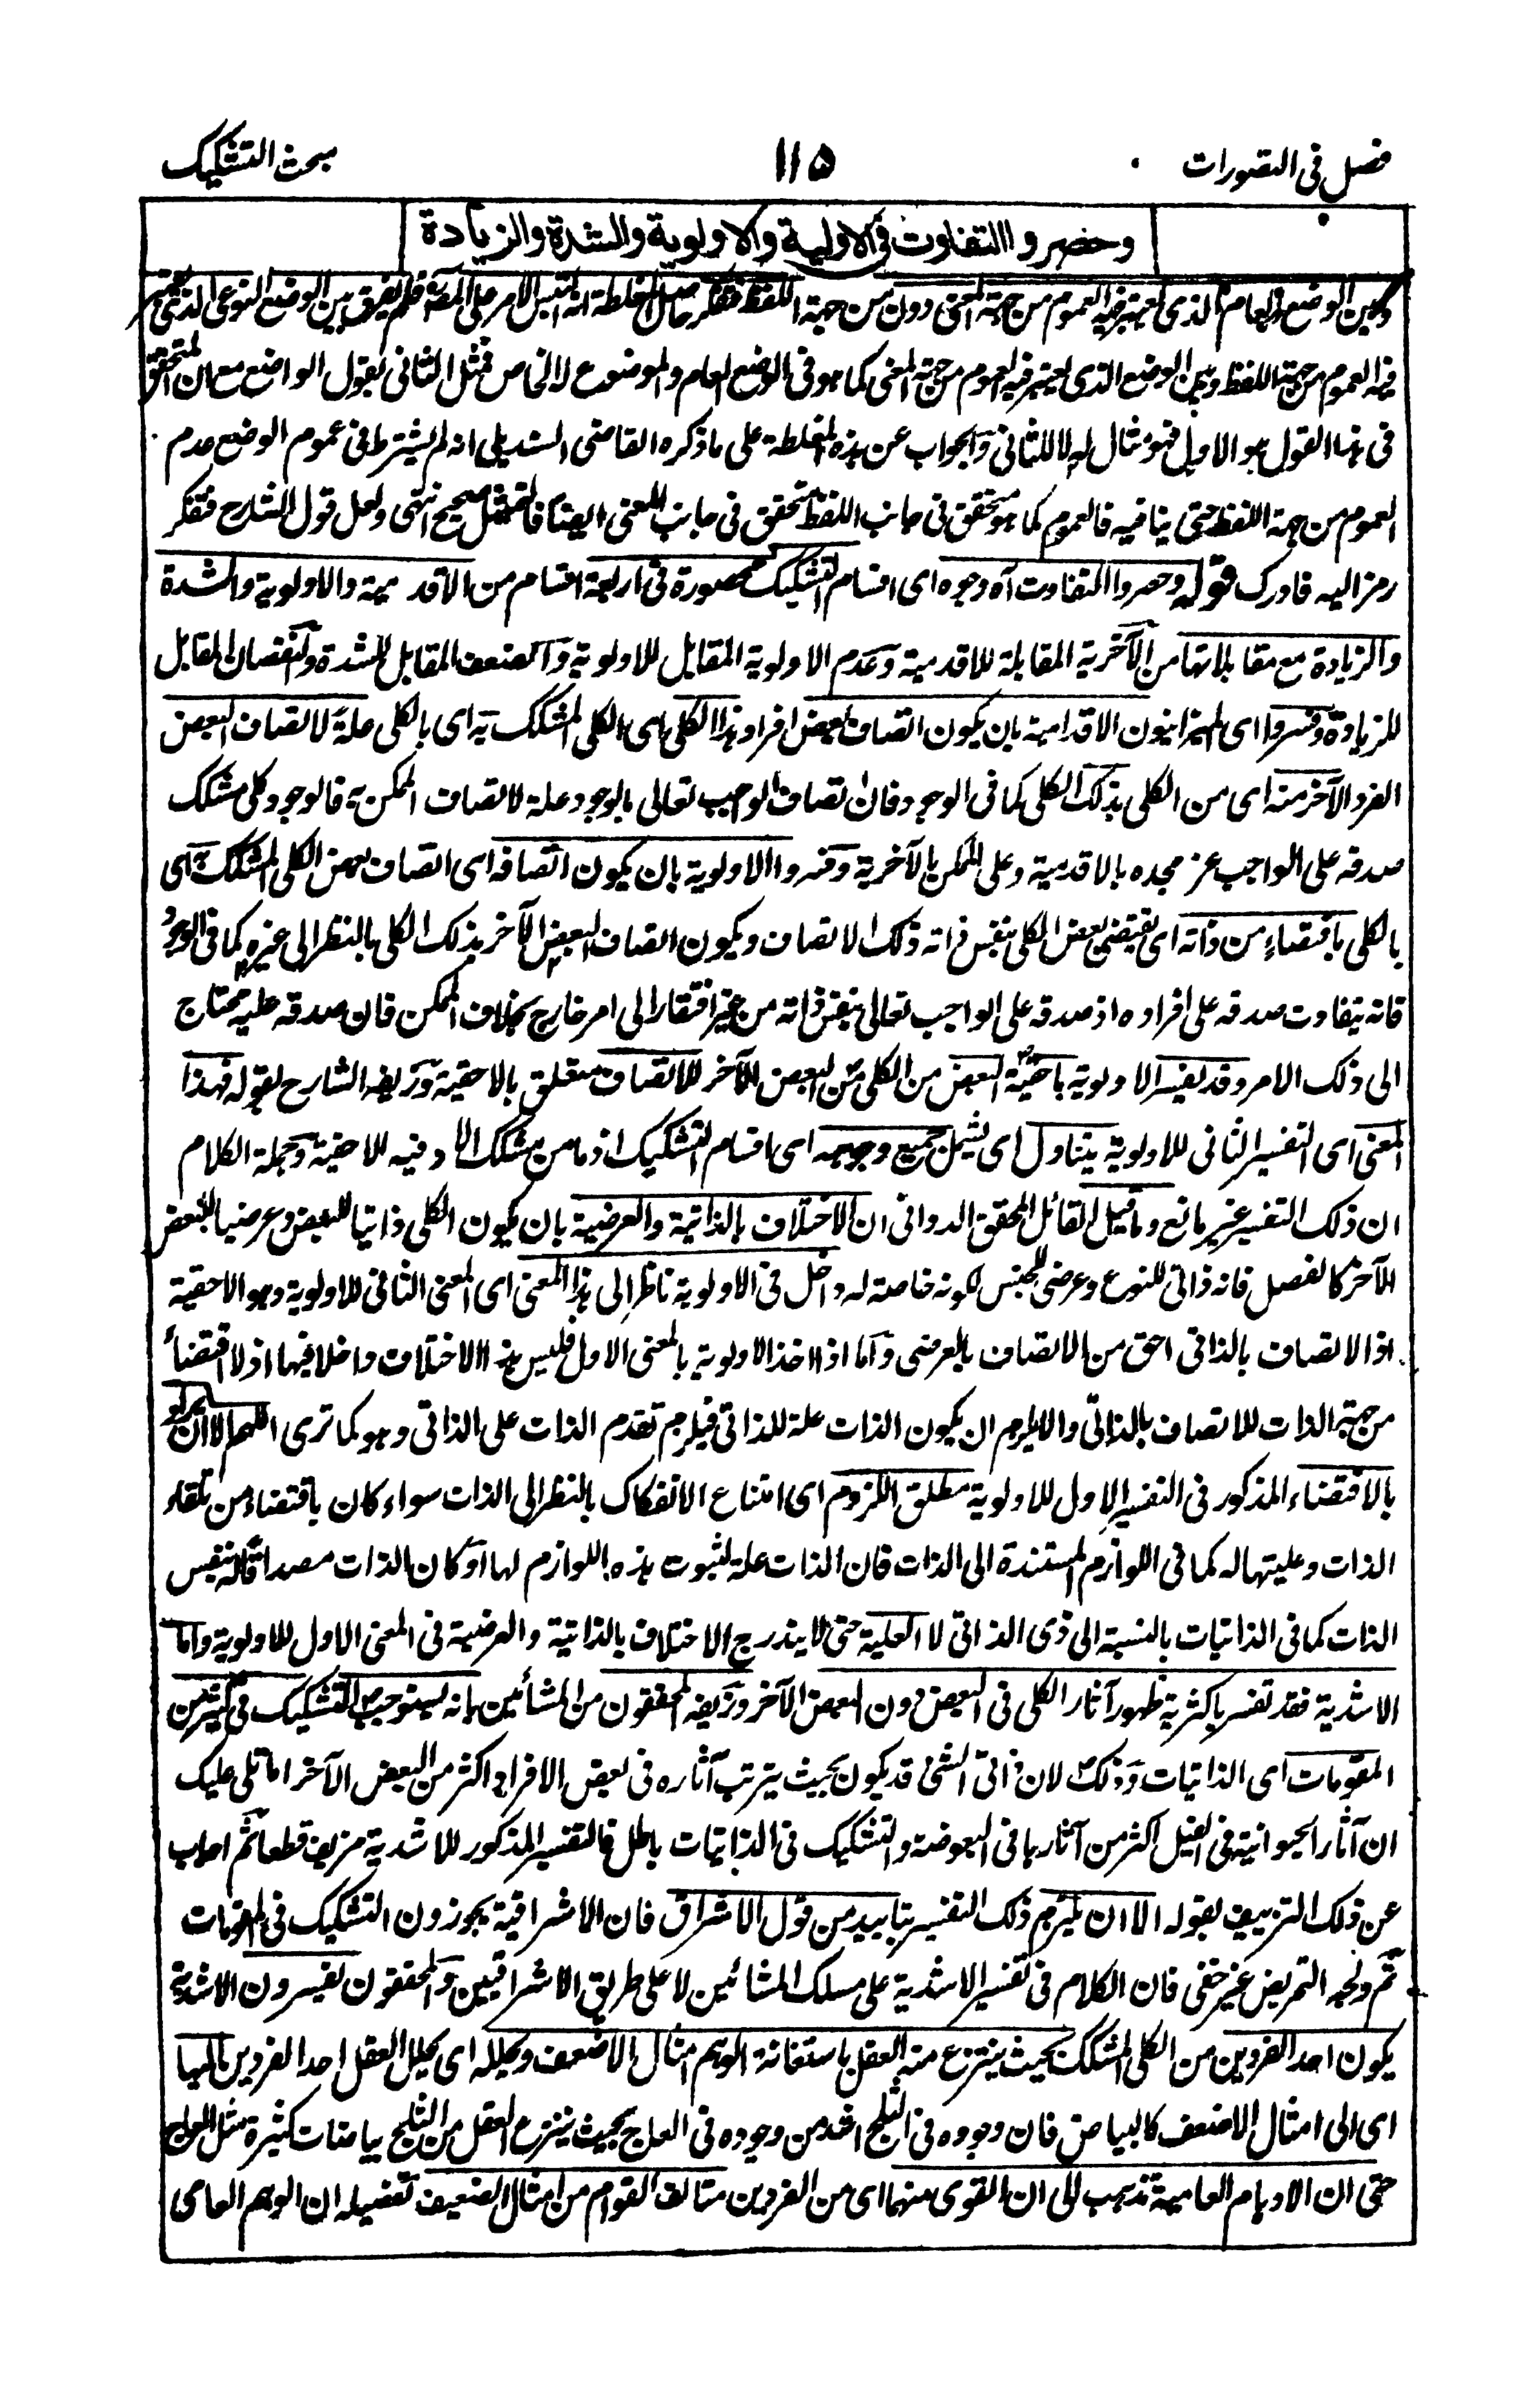 فصل فی التصورات
۱۱۵
مبحث التشکیک
وحصروا التفاوت فی الاولیة والاولویة والشدة والزیادة
وبین الوضع العام الذی یعتبر فیه العموم من جهة المعنی دون من جهة اللفظ فتفکر حاصل المغلطة انه التبس الامر علی المصنف فلم یفرق بین الوضع النوعی الذی یعتبر
فیه العموم من جهة اللفظ وبین الوضع الذی یعتبر فیه العموم من جهة المعنی کما هو فی الوضع العام والموضوع له الخاص فمثل الثانی بقول الواضع مع ان المتحقق
فی هذا القول هو الاول فهو مثال له لا للثانی والجواب عن هذه المغلطة علی ما ذکره القاضی السندیلی انه لم یشترط فی عموم الوضع عدم
العموم من جهة اللفظ حتی ینافیه فالعموم کما هو متحقق فی جانب اللفظ متحقق فی جانب المعنی ایضا فالتمثیل صحیح انتهی ولعل قول الشارح فتفکر
رمز الیه فادرک قوله وحصروا التفاوت آه وجوه ای اقسام التشکیک محصورة فی اربعة اقسام من الاقدمیة والاولویة والشدة
والزیادة مع مقابلاتها من الآخریة المقابلة للاقدمیة وعدم الاولویة المقابل للاولویة والضعف المقابل للشدة والنقصان المقابل
للزیادة وفسروا ای المیزانیون الاقدمیة بان یکون اتصاف بعض افراد هذا الکلی ای الکلی المشکک به ای بالکلی علة لاتصاف البعض
الفرد الآخر منه ای من الکلی بذلک الکلی کما فی الوجود فان اتصاف الواجب تعالی بالوجود علة لاتصاف الممکن به فالوجود کلی مشکک
صدقه علی الواجب عز مجده بالاقدمیة وعلی الممکن بالآخریة وفسروا الاولویة بان یکون اتصافه ای اتصاف بعض الکلی المشکک به ای
بالکلی باقتضاء من ذاته ای یقتضی بعض الکلی بنفس ذاته ذلک الاتصاف ویکون اتصاف البعض الآخر بذلک الکلی بالنظر الی غیره کما فی الوجود
فانه یتفاوت صدقه علی افراده اذ صدقه علی الواجب تعالی بنفس ذاته من غیر افتقار الی امر خارج بخلاف الممکن فان صدقه علیه محتاج
الی ذلک الامر وقد یفسر الاولویة باحقیة البعض من الکلی من البعض الآخر للاتصاف متعلق بالاحقیة وزیفه الشارح بقوله فهذا
المعنی ای التفسیر الثانی للاولویة یتناول ای یشمل جمیع وجوهه ای اقسام التشکیک اذ ما من مشکک الا وفیه للاحقیة وجملة الکلام
ان ذلک التفسیر غیر مانع وما قیل القائل المحقق الدوانی ان الاختلاف بالذاتیة والعرضیة بان یکون الکلی ذاتیا للبعض وعرضیا للبعض
الآخر کالفصل فانه ذاتی للنوع وعرضی للجنس لکونه خاصة له داخل فی الاولویة ناظر الی هذا المعنی ای المعنی الثانی للاولویة وهو الاحقیة
اذ الاتصاف بالذاتی احق من الاتصاف بالعرضی واما اذا اخذ الاولویة بالمعنی الاول فلیس هذا الاختلاف داخلا فیها اذ لا اقتضاء
من جهة الذات للاتصاف بالذاتی والا یلزم ان یکون الذات علة للذاتی فیلزم تقدم الذات علی الذاتی وهو کما تری اللهم الا ان یراد
بالاقتضاء المذکور فی التفسیر الاول للاولویة مطلق اللزوم ای امتناع الانفکاک بالنظر الی الذات سواء کان باقتضاء من تلقاء
الذات وعلیتها له کما فی اللوازم المستندة الی الذات فان الذات علة لثبوت هذه اللوازم لها او کان الذات مصداقا له بنفس
الذات کما فی الذاتیات بالنسبة الی ذی الذاتی لا العلیة حتی لا یندرج الاختلاف بالذاتیة والعرضیة فی المعنی الاول للاولویة واما
الاشدیة فقد تفسر باکثریة ظهور آثار الکلی فی البعض دون البعض الآخر وزیفه المحققون من المشائین بانه یستوجب التشکیک فی کثیر من
المقومات ای الذاتیات وذلک لان ذاتی الشئ قد یکون بحیث یترتب آثاره فی بعض الافراد اکثر من البعض الآخر اما تلی علیک
ان آثار الحیوانیة فی الفیل اکثر من آثارها فی البعوضة والتشکیک فی الذاتیات باطل فالتفسیر المذکور للاشدیة مزیف قطعا ثم اجاب
عن ذلک التزییف بقوله الا ان یلتزم ذلک التفسیر بتایید من قول الاشراق فان الاشراقیة یجوزون التشکیک فی المقومات
ثم وجه التمریض غیر خفی فان الکلام فی تفسیر الاشدیة علی مسلک المشائین لا علی طریق الاشراقیین والمحققون یفسرون الاشدیة
یکون احد الفردین من الکلی المشکک بحیث ینتزع منه العقل باستعانة الوهم امثال الاضعف ویحلله ای یحلل العقل احد الفردین الیها
ای الی امثال الاضعف کالبیاض فان وجوده فی الثلج اشد من وجوده فی العاج بحیث ینتزع العقل من الثلج بیاضات کثیرة مثل العاج
حتی ان الاوهام العامیة تذهب الی ان القوی منهما ای من الفردین متالف القوام من امثال الضعیف تفصیله ان الوهم العامی